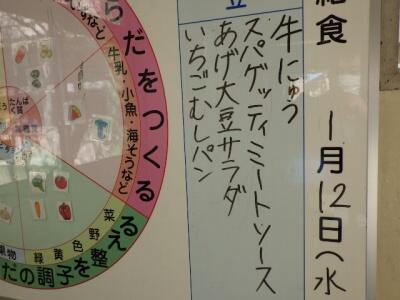 給食 1月12日(水
牛にゅう
スパゲッティミートソース
あげ大豆サラダ
いちごむしパン
らだをつくる
牛乳・小魚・海そうなど
たんぱく質
無機質
るえ
菜野色黄緑
果物
だの調子を整